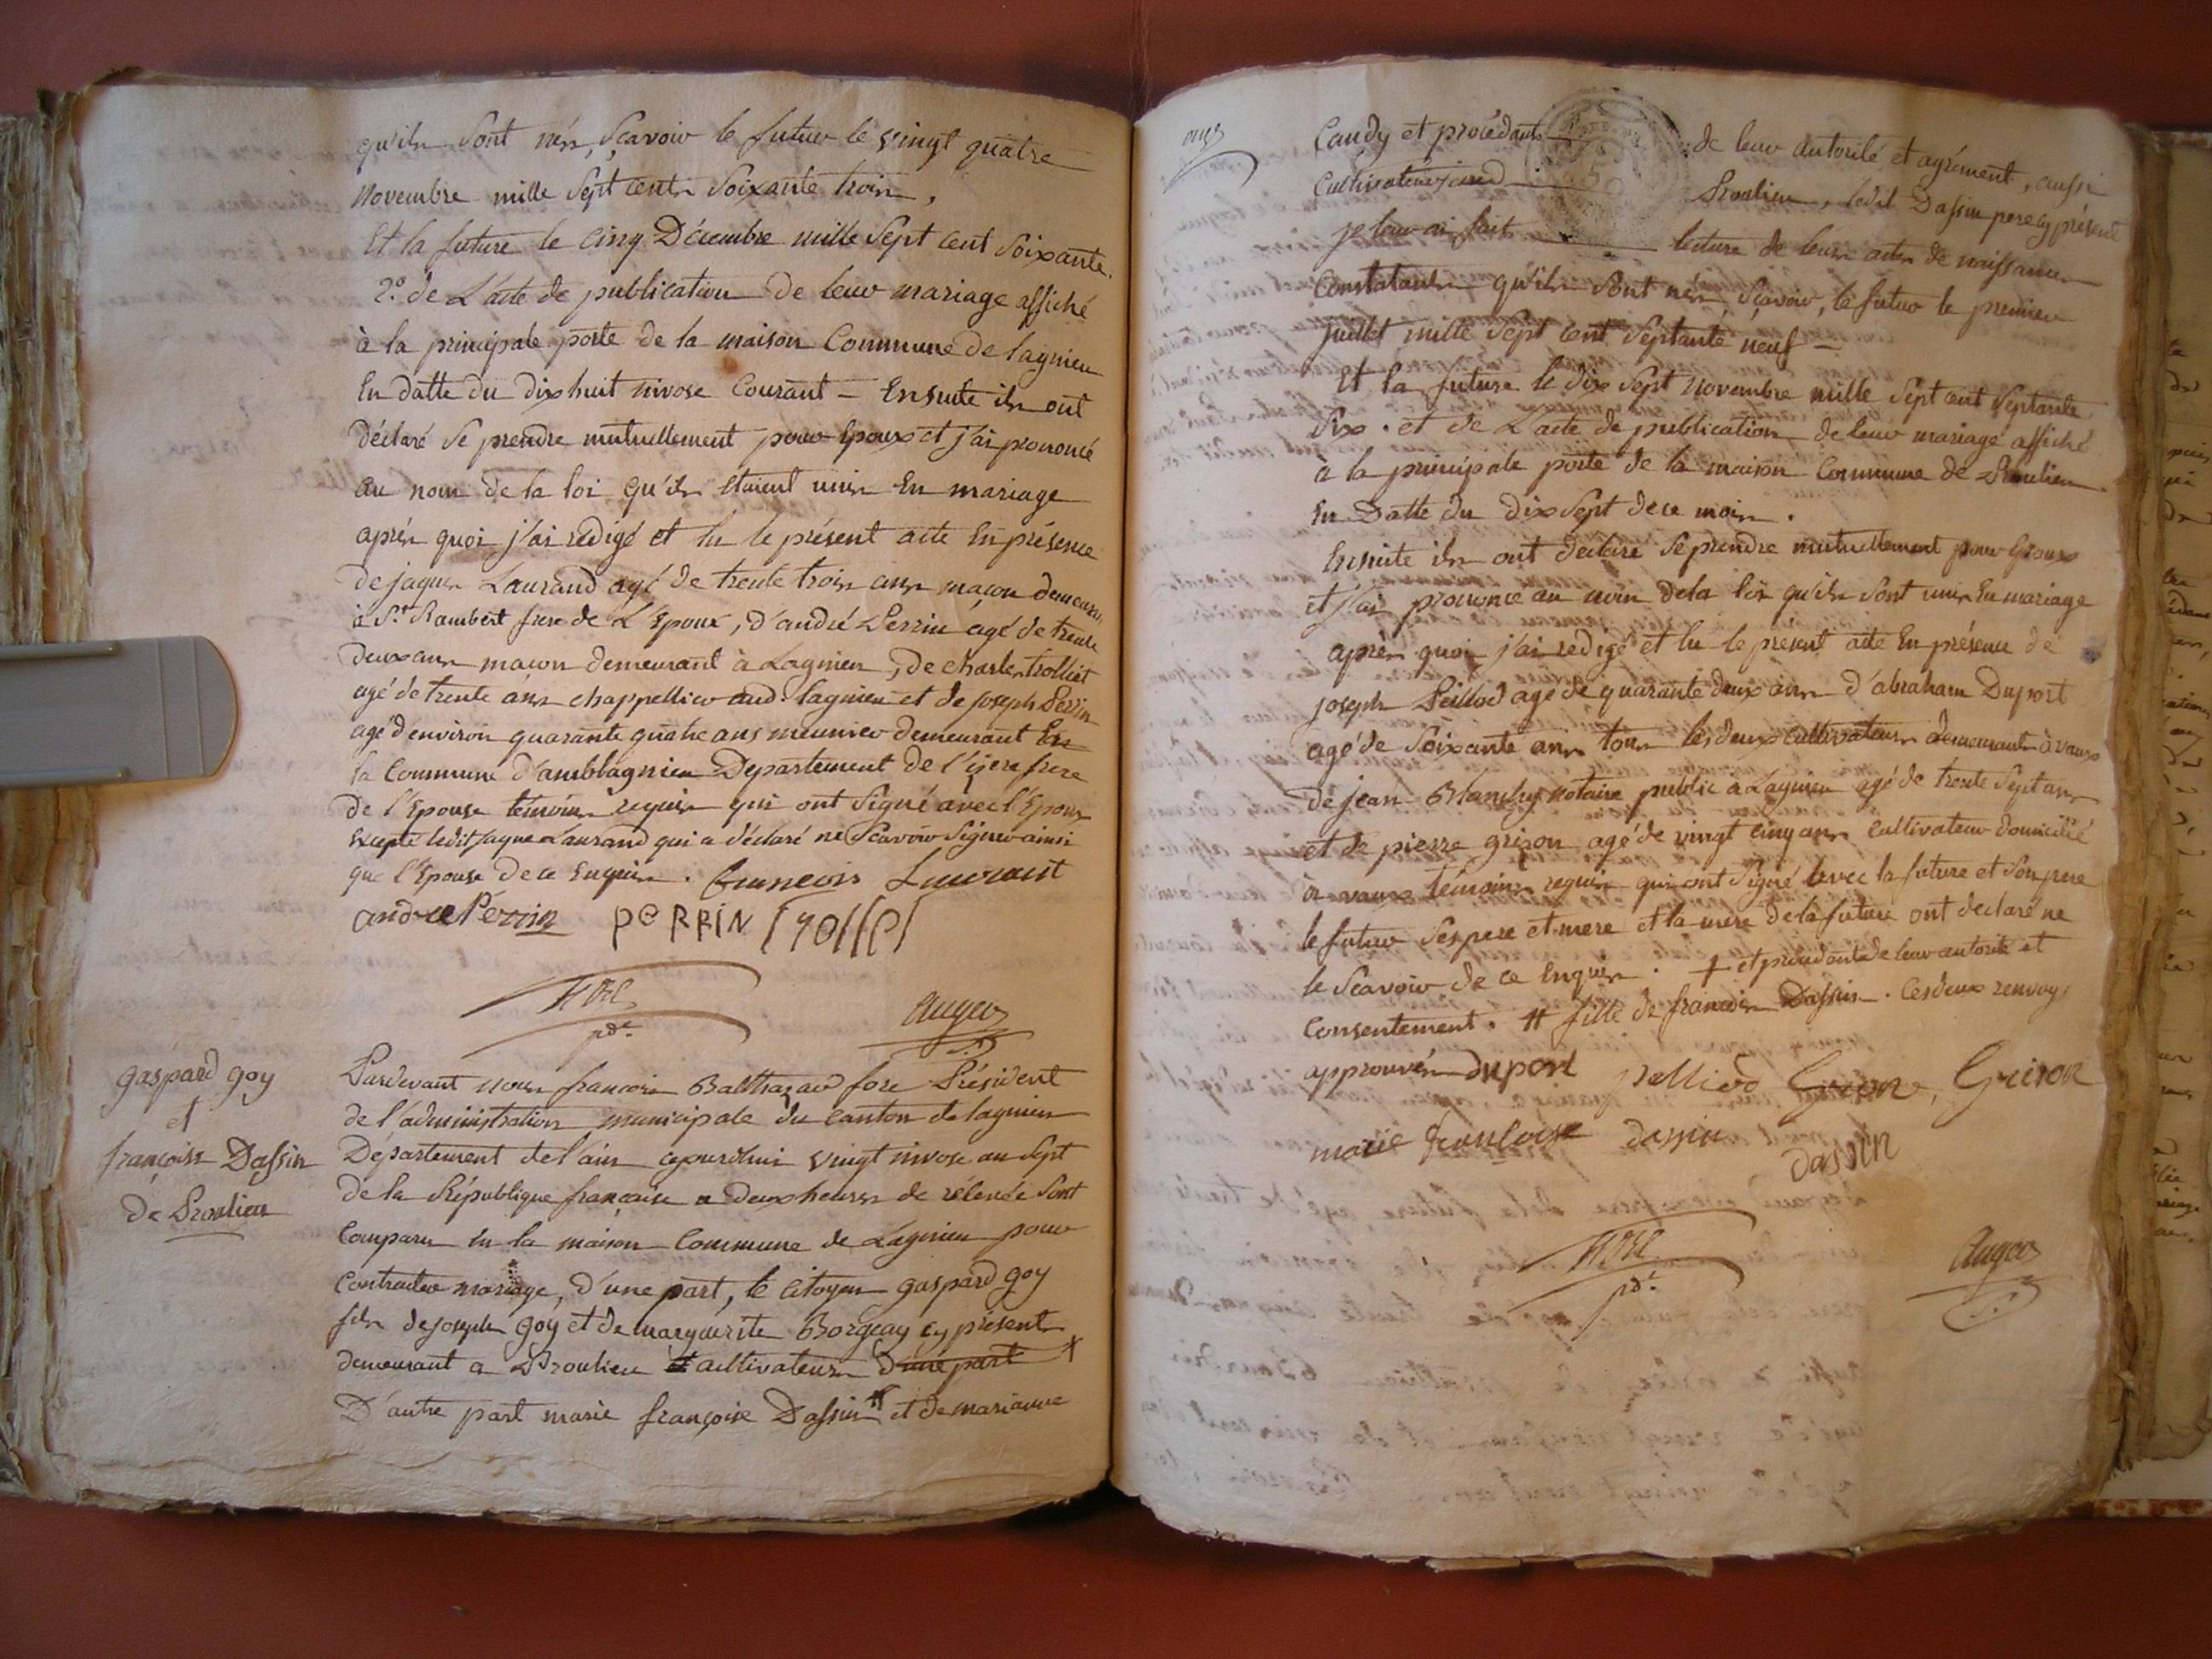 qu'ils sont nés, sçavoir le futur le vingt quatre
novembre mille sept cents soixante trois,
Et la future le cinq Décembre mille sept cent soixante.
2.° de L'acte de publication de leur mariage affiché
à la principale porte de la maison Commune de lagnieu
En datte du dix huit nivose Courant – Ensuite ils ont
déclaré se prendre mutuellement pour Epoux et j'ai prononcé
au nom de la loi qu'ils étaient unis En mariage
après quoi j'ai redigé et lu le présent acte En présence
de jaques Laurand agé de trente trois ans maçon demeurant
à St Rambert frere de L'Epoux, d'andré Perrin agé de trente
deux ans maçon demeurant à Lagnieu, de charles trolliet
agé de trente ans chappellier aud. lagnieu et de joseph Perrin
agé d'environ quarante quatre ans meunier demeurant En
la Commune d'amblagnieu Departement de l'isere frere
de l'Epouse témoins requis qui ont signé avec l'Epoux
Excepté ledit jaque Laurand qui a déclaré ne Scavoir signer ainsi
que l'Epouse de ce Enquis. francois Laurant
andre Perrin PERRIN trolliet
fore
pdt.
Auger
gaspard goy
et
françoise Dassin
de Proulieu
Pardevant nous francois Balthazard fore Président
de l'administration municipale du canton de lagnieu
Département de l'ain cejourdhui vingt nivose an sept
de la République française a deux heures de rélevée sont
Comparu En la maison Commune de Lagnieu pour
Contracter mariage, d'une part, le citoyen gaspard goy
fils de joseph goy et de marguerite Borgeay cy présents
demeurant a Proulieu et cultivateurs d'une part +
D'autre part marie françoise Dassin # et de marianne
Caudy et procédants de leur autorité et agrément, aussi
Cultivateurs aud Proulieu, ledit Dassin pere cy présent
je leur ai fait lecture de leurs actes de naissances
Constatants qu'ils sont nés, sçavoir, le futur le premier
juillet mille sept cent septante neuf –
Et la future le dix sept novembre mille sept cent septante
six. et de L'acte de publication de leur mariage affiché
à la principale porte de la maison Commune de Proulieu
En Datte du dix sept de ce mois.
Ensuite ils ont declaré se prendre mutuellement pour Epoux
et j'ai prononcé au nom de la loi qu'ils sont unis En mariage
après quoi j'ai redigé et lu le present acte En présence de
joseph Peillod agé de quarante deux ans d'abraham Duport
agé de soixante ans tous les deux cultivateurs demeurants à vaux
de jean Blanchy notaire public à Lagnieu agé de trente sept ans
et de pierre grison agé de vingt cinq ans cultivateur domicilié
à vaux témoins requis qui ont signé avec la future et son pere
le futur ses pere et mere et la mere de la future ont declaré ne
le Scavoir de ce Enquis. + et procédants de leur autorité et
Consentement. # fille de francois Dassin. Ces deux renvoys
approuvés duport peilliod Grison
marie francoise dassin
dassin
fore
pdt.
Auger